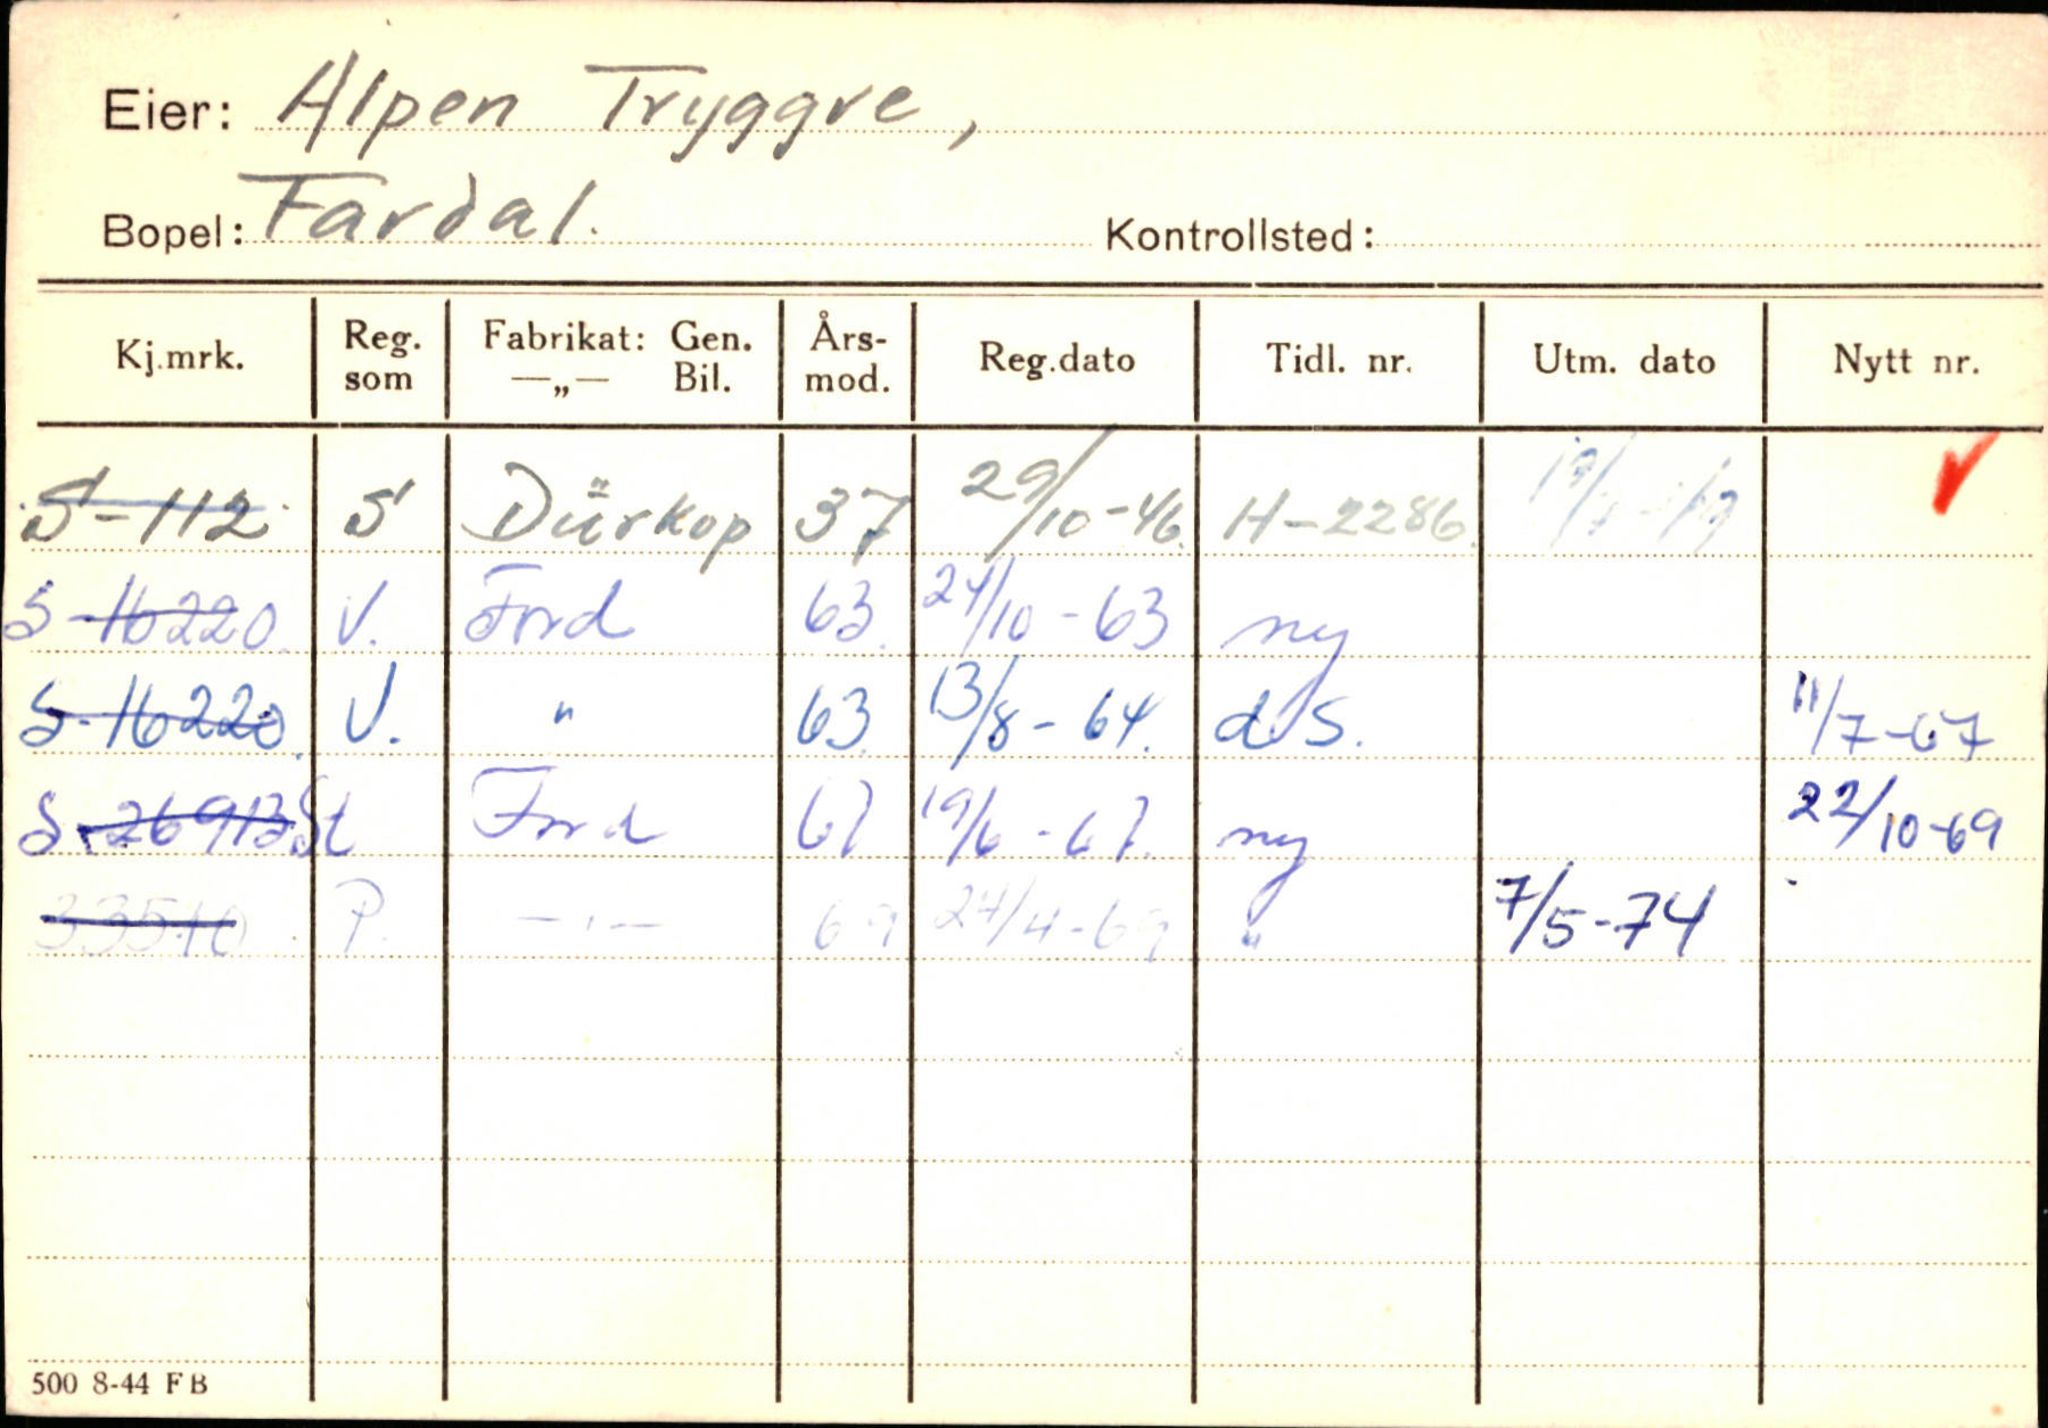 Eier: Alpen Tryggve,
Bopel: Fardal.
Kontrollsted:
Kj.mrk. Reg. som Fabrikat: Gen. —„— Bil. Års-mod. Reg.dato Tidl. nr. Utm. dato Nytt nr.
S-112 S Dürkop 37 29/10-46. H-2286.
S-16220. V. Ford 63. 24/10-63 ny
S-16220. V. " 63. 13/8-64. d.S. 11/7-67
S-26913 St Ford 67 19/6-67. ny 22/10-69
33510 P. —"— 69 24/4-69 " 7/5-74
500 8-44 FB